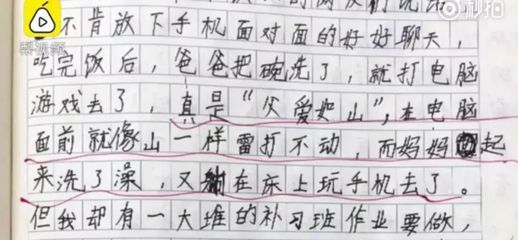 秒拍
梨视频
不肯放下手机面对面的好好聊天，
吃完饭后，爸爸把碗洗了，就打电脑
游戏去了，真是“父爱如山”，在电脑
面前就像山一样雷打不动，而妈妈起
来洗了澡，又躺在床上玩手机去了。
但我却有一大堆的补习班作业要做，